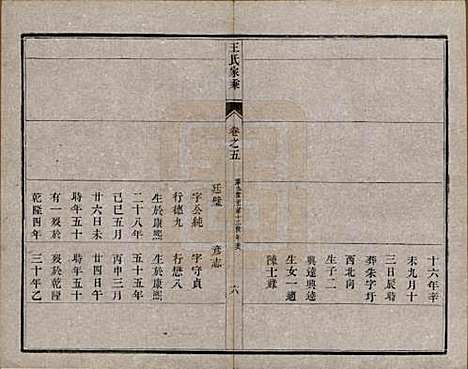 十六年辛
未九月十
三日辰時
葬朱字圩
西北向
生子二
興遠興達
生女一適
陳士
王氏家乘
卷之五
六
廷璧
字公純
行德九
生於康熙
二十八年
己巳五月
廿六日未
時年五十
有一歿於
乾隆四年
彥志
字守貞
行懋八
生於康熙
五十五年
丙申三月
廿四日午
時年五十
歿於乾隆
三十年乙